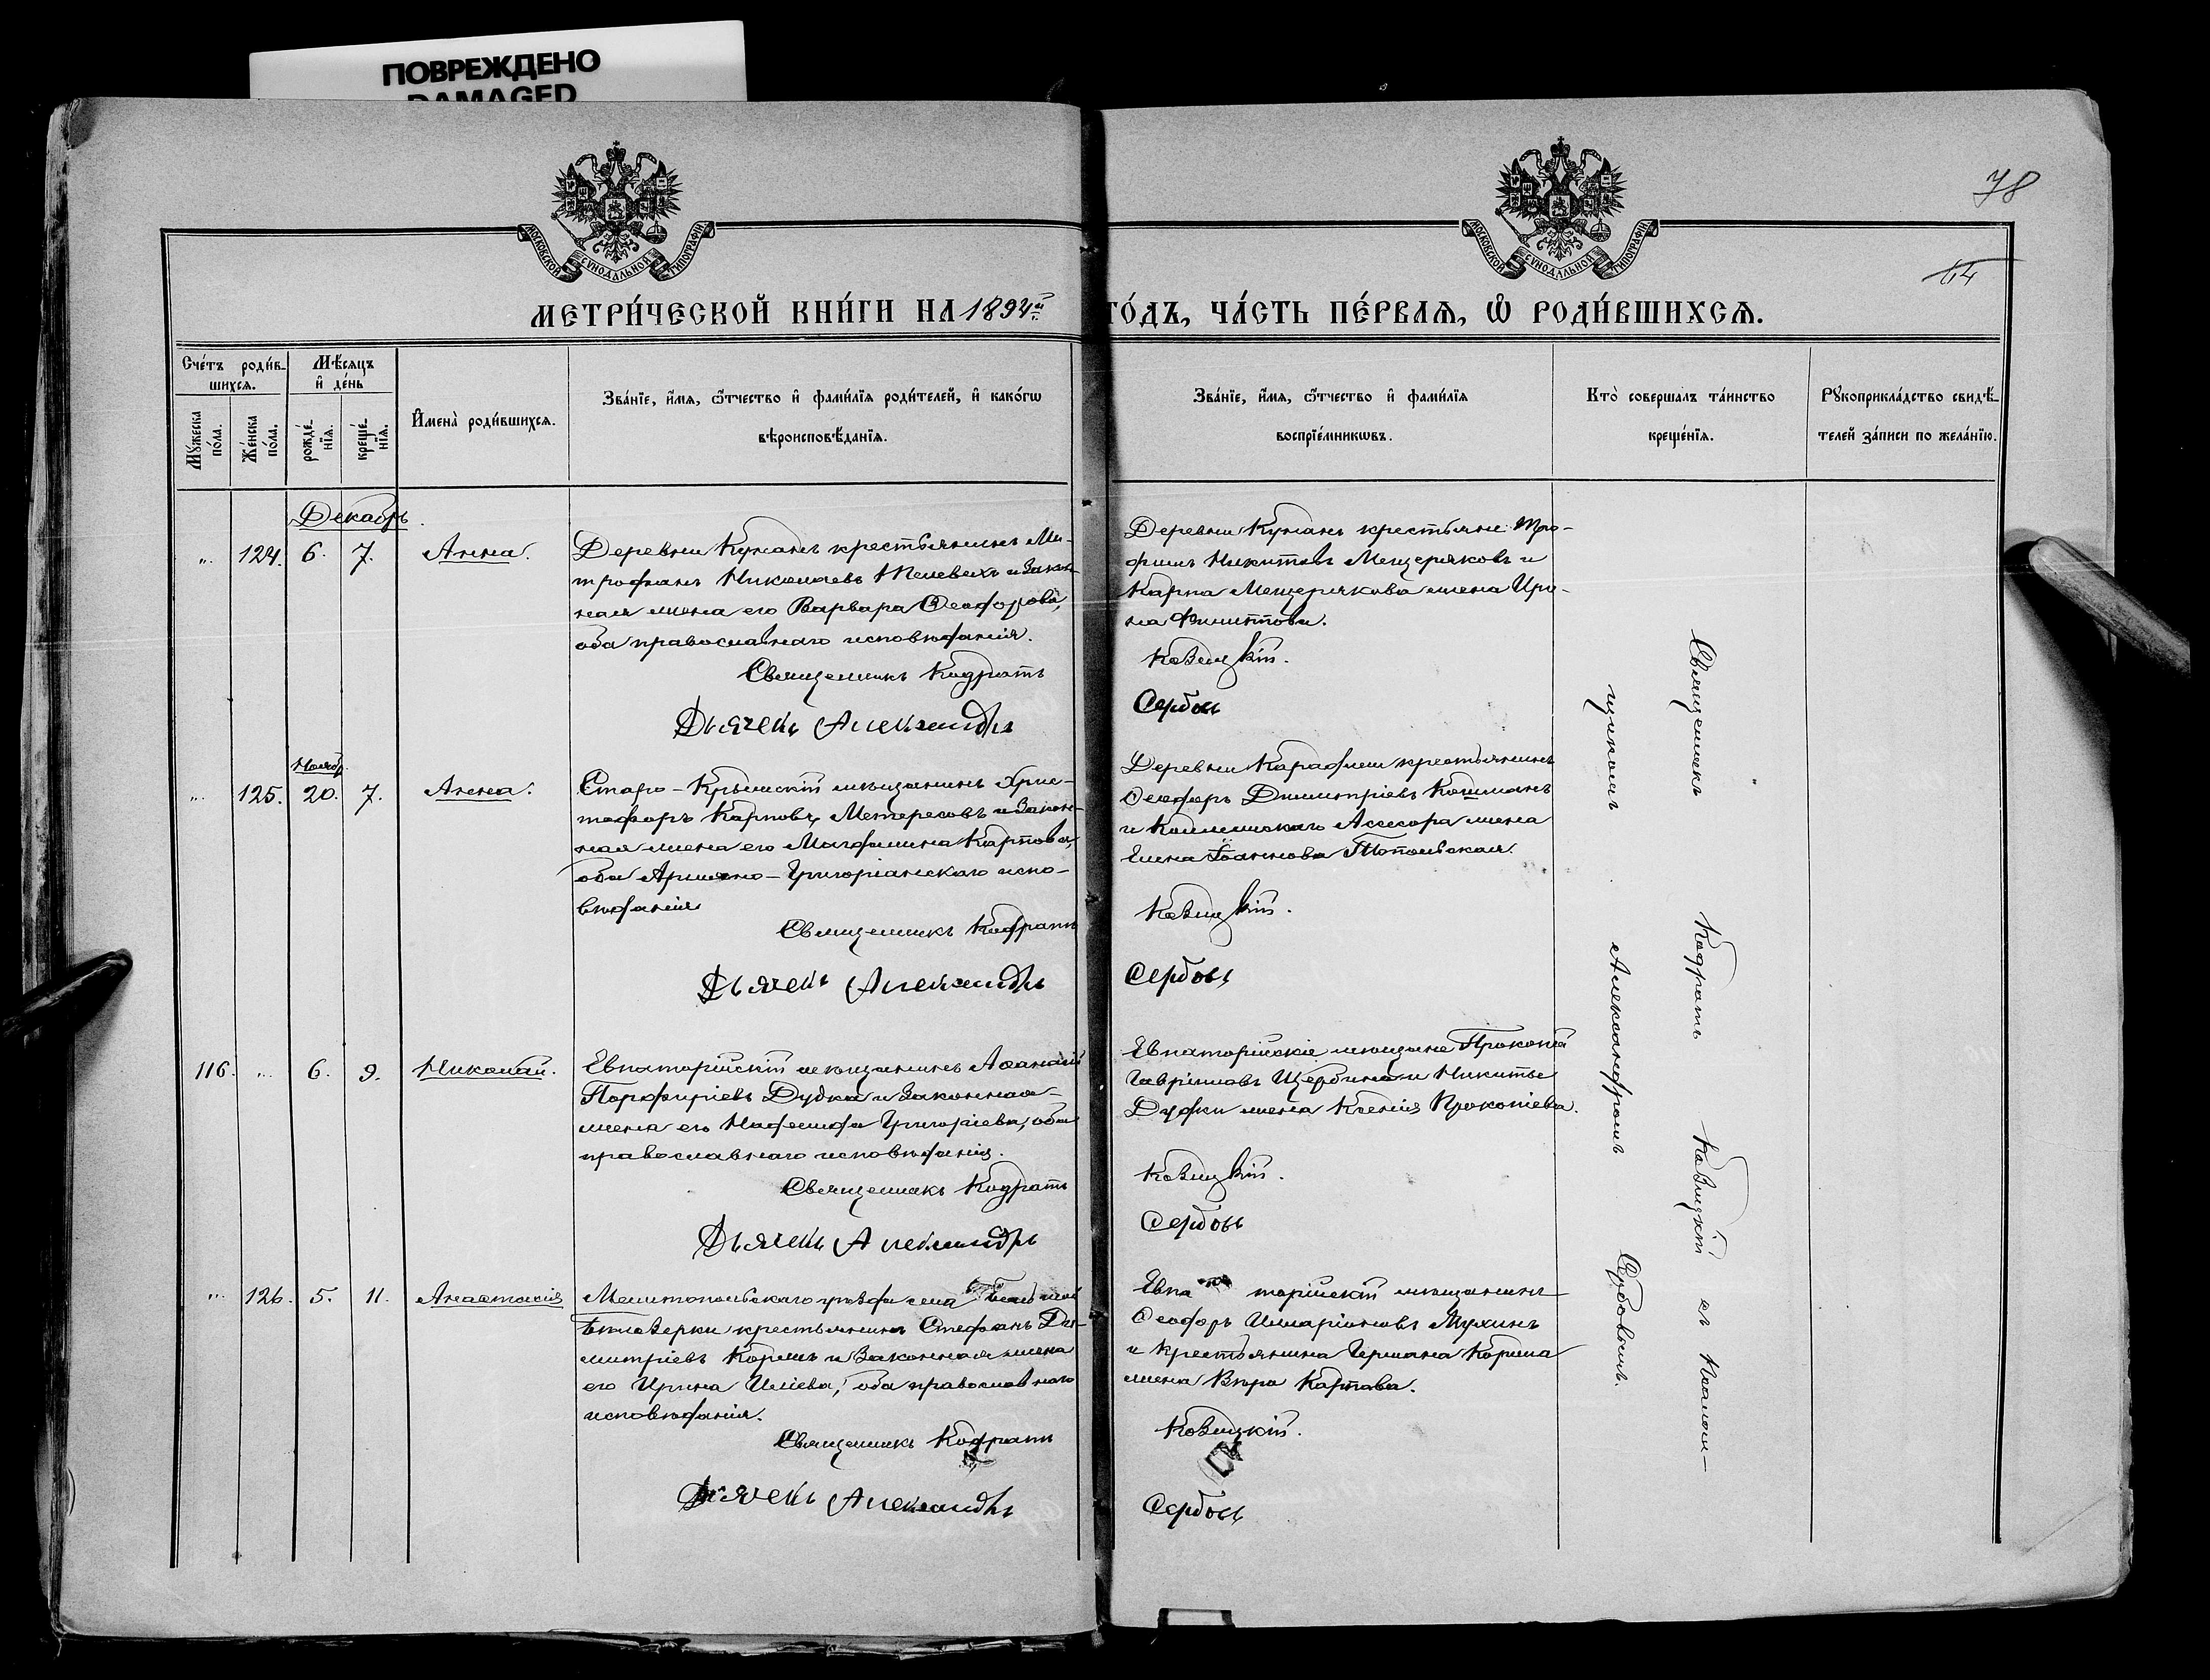 ПОВРЕЖДЕНО
DAMAGED
МОСКОВСКОЙ СѴНОДАЛЬНОЙ ТИПОГРАФІИ
МОСКОВСКОЙ СѴНОДАЛЬНОЙ ТИПОГРАФІИ
78
64
МЕТРИ́ЧЕСКОЙ КНИ́ГИ НА 1894й
ГО́ДЪ, ЧА́СТЬ ПЕ́РВАѦ, Ѽ РОДИ́ВШИХСѦ.
Сче́тъ роди́в-
шихсѧ.
Мꙋжеска по́ла.
Же́нска по́ла.
Мѣ́сѧцъ
и҆ де́нь
рожде́нїѧ.
креще́нїѧ.
И҆мена̀ роди́вшихсѧ.
Зва́нїе, и҆́мѧ, ѻ҆́тчество и҆ фами́лїѧ роди́телей, и҆ како́гѡ
вѣроисповѣ́данїѧ.
Зва́нїе, и҆́мѧ, ѻ҆́тчество и҆ фами́лїѧ
воспрїе́мникѡвъ.
Кто̀ совершалъ та́инство
креще́нїѧ.
Рꙋкоприкла́дство свидѣ́-
телей за́писи по жела́нїю.
Декабрь.
„ 124. 6. 7. Анна.
Деревни Кункан крестьянинъ Ми-
трофанъ Николаевъ и закон-
ная жена его Варвара Ѳеодорова,
оба православнаго исповѣданія.
Священникъ Кодратъ
Дьячекъ Александръ
Деревни крестьяне Тро-
фимъ Никитовъ Мещеряковъ и
Карпа Мещерякова жена Ири-
на
Ковицкій.
Сербовъ
Ноябр.
„ 125. 20. 7. Анна.
Старо-Крымскій мѣщанинъ Хрис-
тофоръ Карповъ и закон-
ная жена его Магдалина Карпова,
оба Армяно-Григоріанскаго испо-
вѣданія
Священникъ Кодратъ
Дьячекъ Александръ
Деревни крестьянинъ
Ѳеодоръ Димитріевъ
и Коллежскаго Асессора жена
Елена Іоаннова Топольская.
Ковицкій.
Сербовъ
116. „ 6. 9. Николай.
Евпаторійскій мѣщанинъ Аѳанасій
Порфиріевъ Дудка и законная
жена его Надежда Григоріева, оба
православнаго исповѣданія.
Священникъ Кодратъ
Дьячекъ Александръ
Евпаторійскіе мѣщане Прокопій
Гавріиловъ Щербина и Никиты
Дудки жена Ксенія Прокопіева.
Ковицкій.
Сербовъ
„ 126. 5. 11. Анастасія
Мелитопольскаго уѣзда села Большой
Бѣлозерки крестьянинъ Стефанъ Ди-
митріевъ Коржъ и законная жена
его Ирина Иліева, оба православнаго
исповѣданія.
Священникъ Кодратъ
Дьячекъ Александръ
Евпаторійскій мѣщанинъ
Ѳеодоръ Илларіоновъ Мухинъ
и крестьянина Германа Коржа
жена Вѣра Карпова.
Ковицкій.
Сербовъ
Священникъ Кодратъ Ковицкій съ Псалом-
щикомъ Александромъ Сербовымъ.